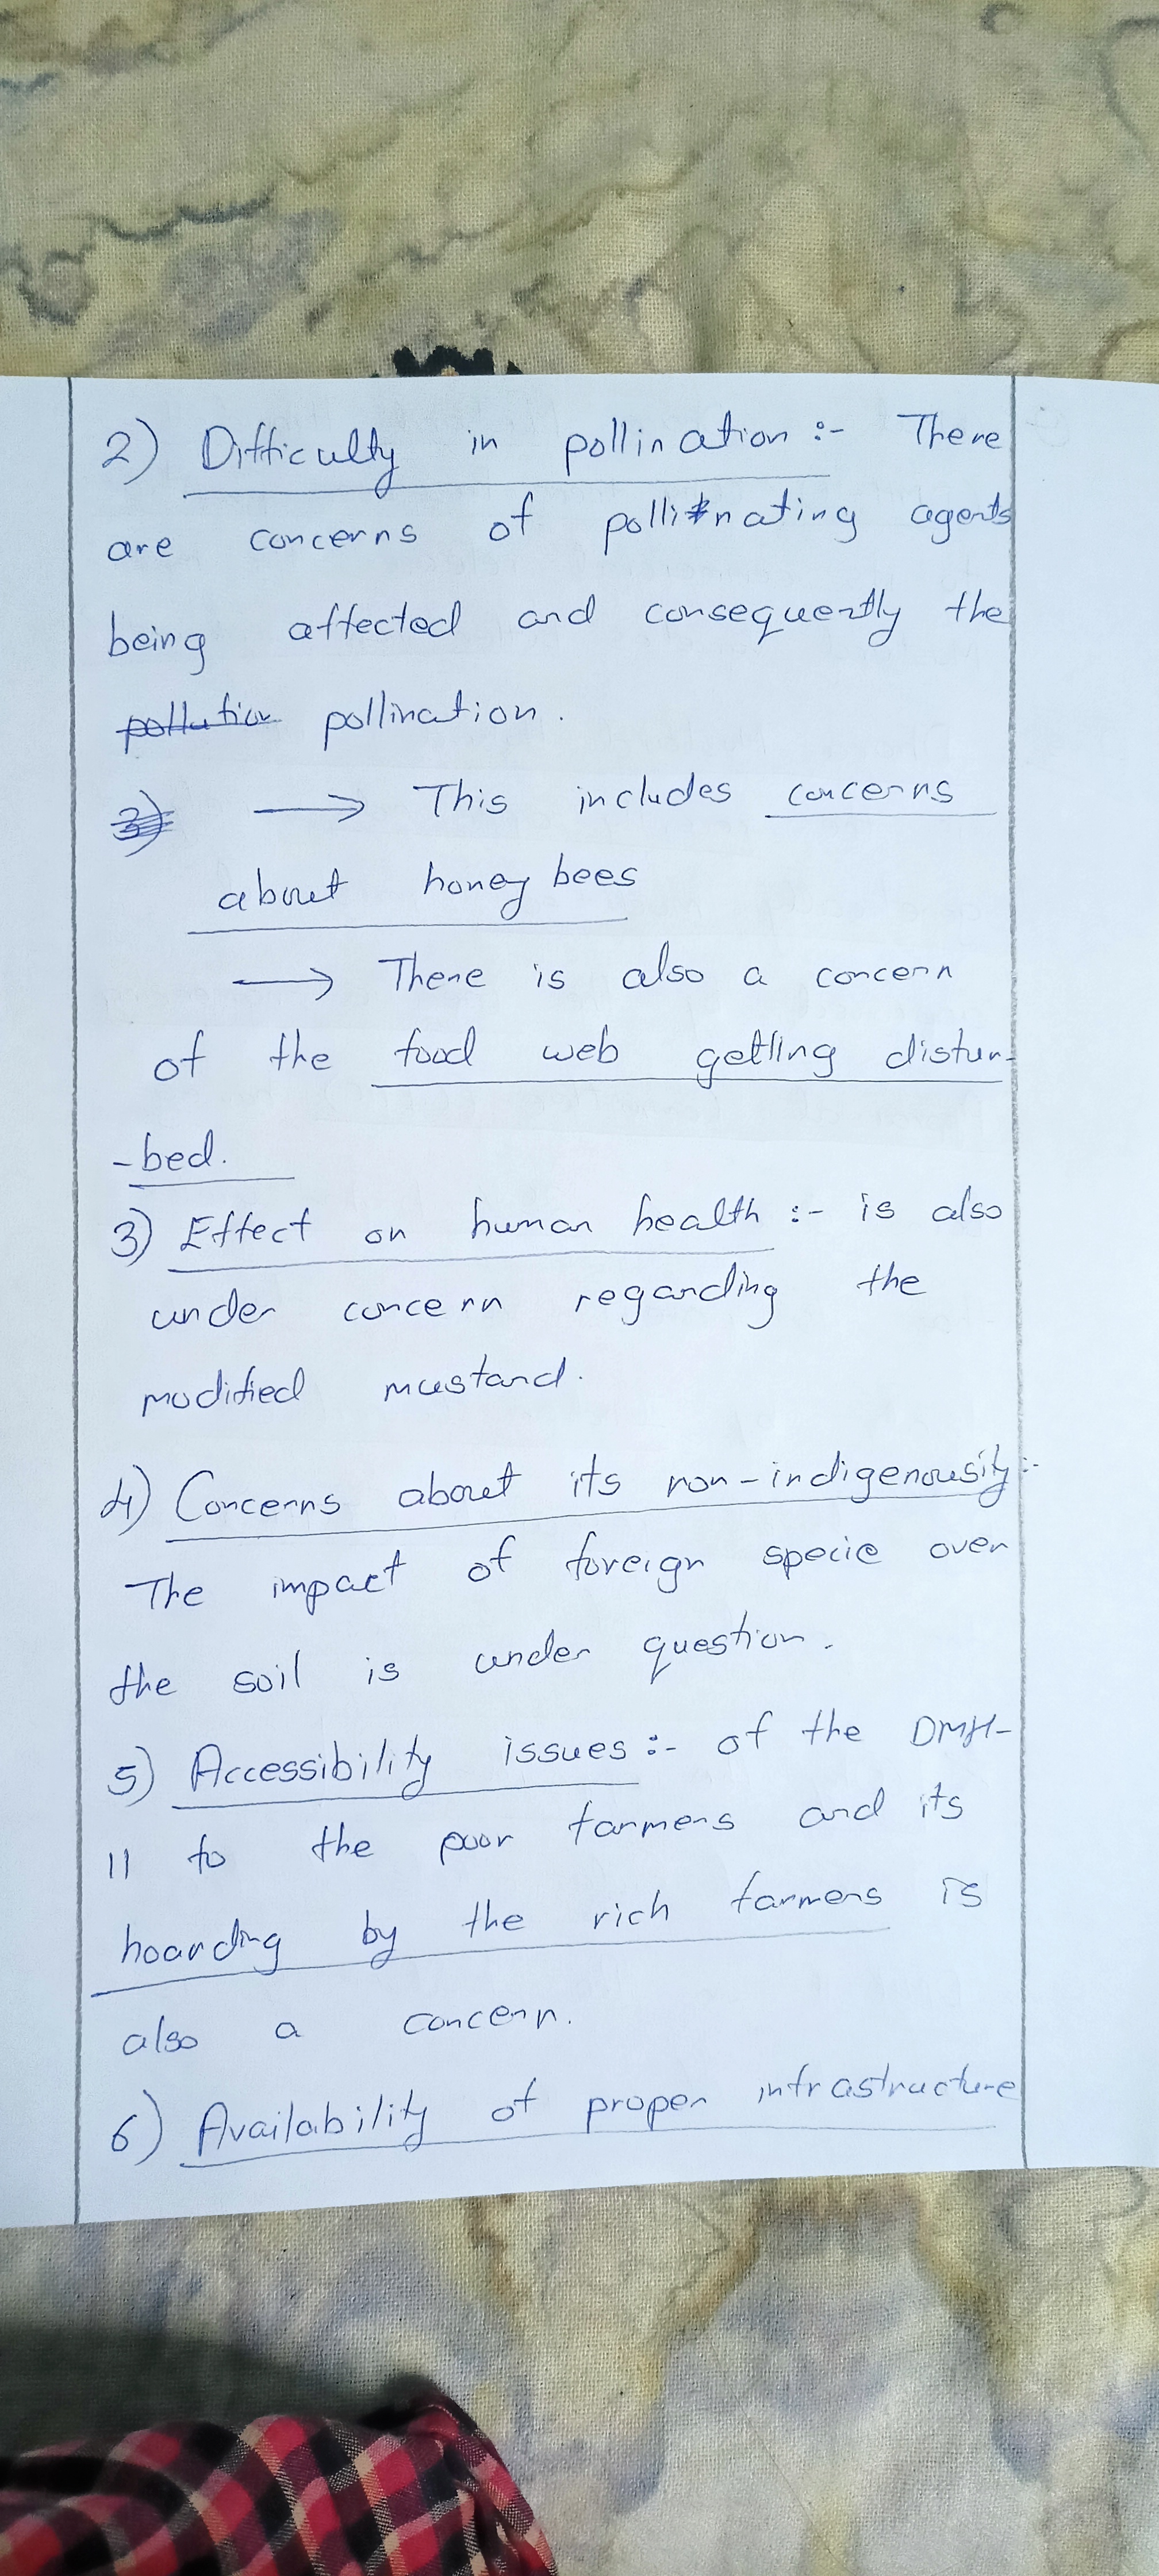 2) Difficulty in pollination :- There
are concerns of pollinating agents
being affected and consequently the
pollution pollination.
3) → This includes concerns
about honey bees
→ There is also a concern
of the food web getting distur-
-bed.
3) Effect on human health :- is also
under concern regarding the
modified mustard.
4) Concerns about its non-indigenousity :-
The impact of foreign specie over
the soil is under question.
5) Accessibility issues :- of the DMH-
11 to the poor farmers and its
hoarding by the rich farmers is
also a concern.
6) Availability of proper infrastructure